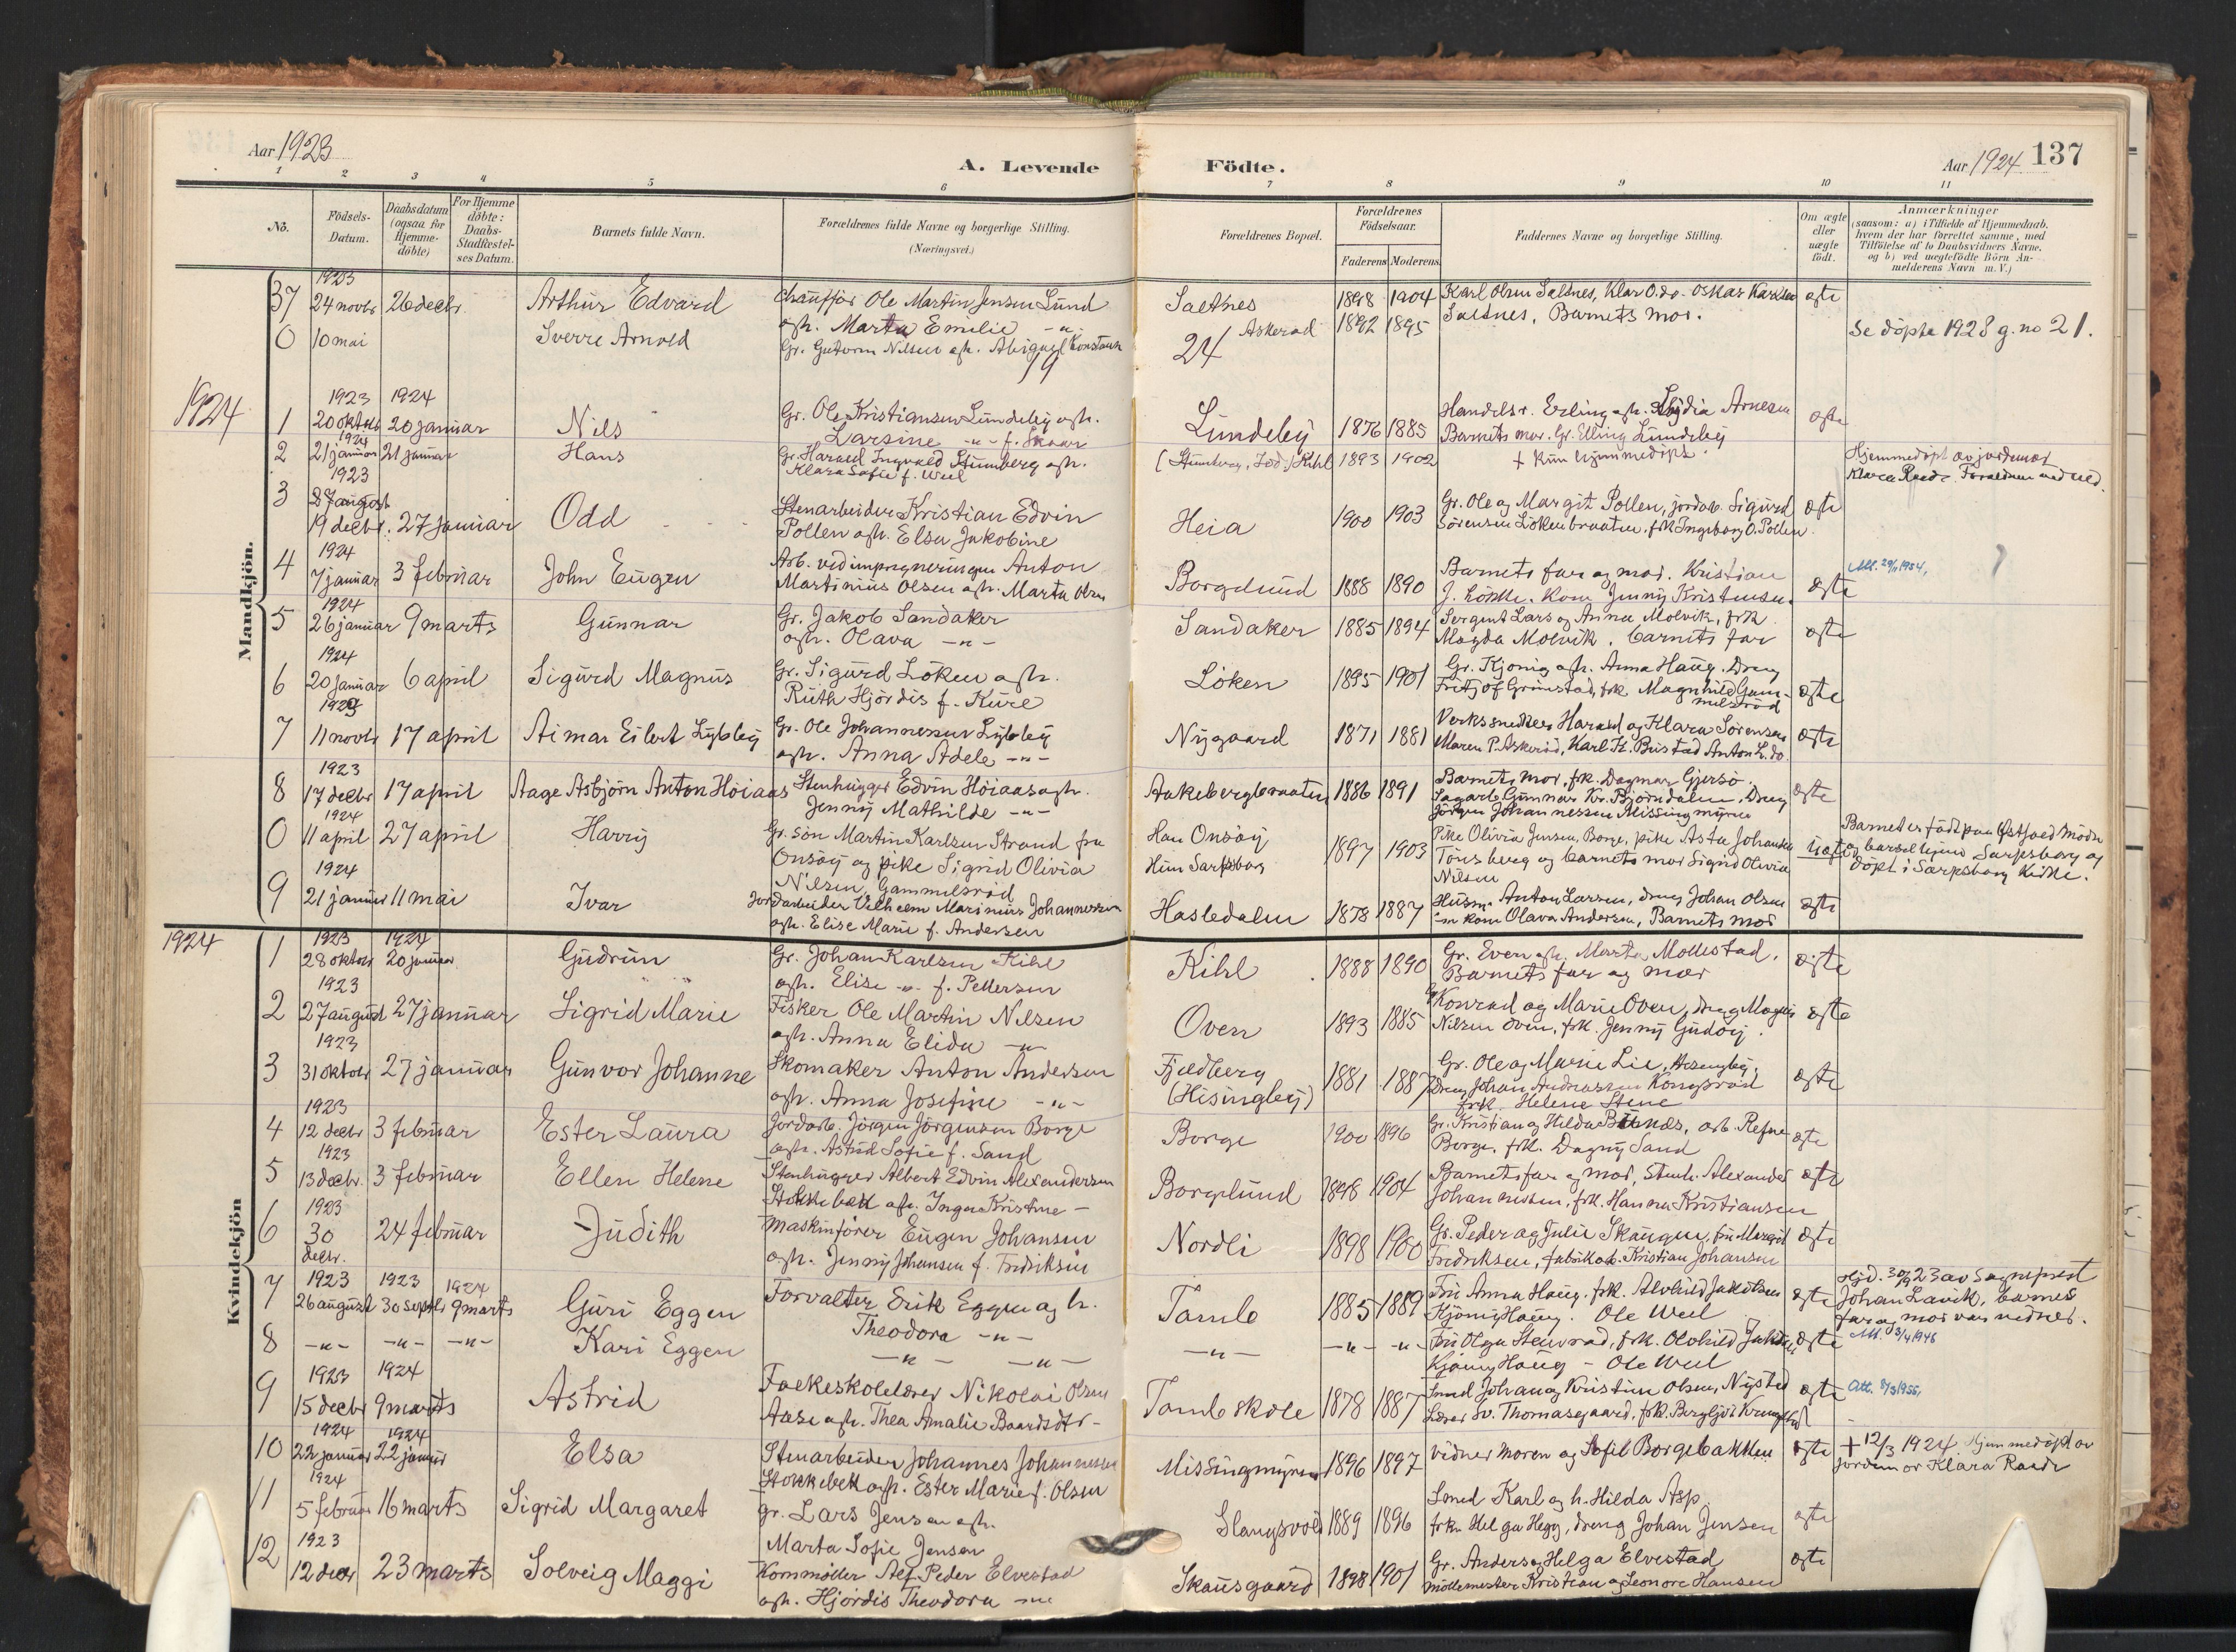 Aar 1923
A. Levende Födte.
Aar 1924 137
1 2 3 4 5 6 7 8 9 10 11
No.
Födsels-Datum.
Daabsdatum (ogsaa for Hjemme-döbte)
For Hjemme döbte: Daabs-Stadfæstel-ses Datum.
Barnets fulde Navn.
Forældrenes fulde Navne og borgerlige Stilling. (Næringsvei.)
Forældrenes Bopæl.
Forældrenes Födselsaar.
Faderens Moderens
Faddernes Navne og borgerlige Stilling.
Om ægte eller uægte födt.
Anmærkninger
(saasom: a) i Tilfælde af Hjemmedaab,
hvem der har forrettet samme, med
Tilföielse af to Daabsvidners Navne,
og b) ved uægtefödte Börn An-
melderens Navn m. V.)
Mandkjön.
1923
37 24 novbr 26 decbr. Arthur Edvard Chaufför Ole Martin Jensen Lund Saltnes 1898 1904 Karl Olsen Saltnes, Klar O. do. Oskar Karlsen ægte
ogh. Marta Emilie -"-
Saltnes, Barnets mor.
0 10 mai Sverre Arnold Gr. Guttorm Nilsen ogh. Abigael Konstanse Askerød 1892 1895 Se döpte 1928 g. no 21.
19 24
1924
1923 1924
1 20 oktobr 20 januar Nils Gr. Ole Kristiansen Lundeby ogh. Lundeby 1876 1885 Handelsr. Erling ogh. Lydia Arnesen ægte
Larsine -"- f. Skaar
Barnets mor. Gr. Elling Lundeby
1924
2 21 januar 21 januar Hans Gr. Harald Ingvald Stumberg ogh. Kihl 1893 1902 + Kun hjemmedöpt.
Klara Sofie f. Weel
Hjemmedöpt av jordemor
Klara Raade. Forældrene vidner.
1923
3 27 august
19 decbr. 27 januar Odd Stenarbeider Kristian Edvin Heia 1900 1903 Gr. Ole og Margit Pollen, jordarb. Sigurd ægte
Pollen ogh. Elsa Jakobine
Sörensen Lökenbraaten, frk Ingeborg O. Pollen.
1924
4 7 januar 3 februar John Eugen Arb. ved impregneringen Anton Borgelund 1888 1890 Barnets far og mor. Kristian ægte
Martinius Olsen ogh. Marta Olsen
J. Lökke. Kone Jenny Kristensen.
1924
5 26 januar 9 marts Gunnar Gr. Jakob Sandaker Sandaker 1885 1894 Sergent Lars og Anna Molvik, frk. ægte
ogh. Olava -"-
Magda Molvik. barnets far
1924
6 20 januar 6 april Sigurd Magnus Gr. Sigurd Löken ogh. Löken 1895 1901 Gr. Kjönig ogh. Anna Haug. Dreng ægte
Ruth Hjördis f. Kure
Fritjof Grimstad, frk. Magnhild Gam-
melsröd
1923
7 11 novbr 17 april Aimar Eilert Lybby Gr. Ole Johannessen Lybby Nygaard 1871 1881 Verkssnedker Harald og Klara Sörensen ægte
ogh. Anna Adele -"-
Maren P. Askeröd, Karl H. Bristad Anton L. do.
1923
8 17 decbr 17 april Aage Asbjörn Anton Höiaas Stenhugger Edvin Höiaas ogh. Aakebergbraaten 1886 1891 Barnets mor, frk. Dagmar Gjersö. ægte
Jenny Mathilde -"-
Sagarb. Gunnar Kr. Björndalen, Dreng
Jörgen Johannessen Missingmyren
1924
0 11 april 27 april Harry Gr. sön Martin Karlsen Strand fra Han Onsöy 1897 1903 Pike Olivia Jensen, Borge, pike Asta Johansen uægte
Onsöy og pike Sigrid Olivia Hun Sarpsborg
Tönsberg og barnets mor Sigrid Olivia
Nilsen Gammelsröd
Nilsen
Barnet er födt paa Östfold mödre
og barselhjem Sarpsborg og
döpt i Sarpsborg kirke.
1924
9 21 januar 11 mai Ivar Jordarbeider Vilhelm Marinius Johannessen Hasledalen 1878 1887 Husm. Anton Larsen, dreng Johan Olsen ægte
ogh. Elise Marie f. Andersen
kone Olava Andersen, Barnets mor
Kvindekjön
1924
1923 1924
1 28 oktobr 20 januar Gudrun Gr. Johan Karlsen Kihl Kihl 1888 1890 Gr. Even ogh. Marta Mollestad. ægte
ogh. Elise -"- f. Pettersen
Barnets far og mor
1923
2 27 august 27 januar Sigrid Marie Fisker Ole Martin Nilsen Oven 1893 1885 Konrad og Marie Oven, dreng Magnus ægte
ogh. Anna Elida -"-
Nilsen Oven, frk. Jenny Gudöy.
1923
3 31 oktobr 27 januar Gunvor Johanne Skomaker Anton Andersen Fjeldberg 1881 1887 Gr. Ole og Marie Lie, ægte
ogh. Anna Josefine -"- (Hisingby)
Dreng Johan Andreassen Kongsröd
frk. Helene Stene
1923
4 12 decbr 3 februar Ester Laura Jordarb. Jörgen Jörgensen Borge Borge 1900 1896 Gr. Kristian og Hilda Bunæs, arb. Refne ægte
ogh. Astrid Sofie f. Sand
Borge, frk. Dagny Sand
1923
5 13 decbr. 3 februar Ellen Helene Stenhugger Albert Edvin Alexandersen Borgelund 1898 1904 Barnets far og mor, Stenh. Alexander ægte
Stokkebæk ogh. Inga Kristine -
Johannessen, frk. Hanna Kristiansen
1923
6 30 decbr. 24 februar Judith Maskinförer Eugen Johansen Nordli 1898 1900 Gr. Peder og Julie Skaugen, fru Margit ægte
ogh. Jenny Johansen f. Fredriksen
Fredriksen, fabrikarb. Kristian Johansen
1923 1923 1924
7 26 august 30 septbr 9 marts Guri Eggen Forvalter Erik Eggen og h. Tomb 1885 1889 Fru Anna Haug. frk. Alvhild Jakobsen ægte
Theodora -"-
Kjönig Haug. Ole Weel
Hjd. 30/9 23 av sogneprest
Johan Lavik, barnets
far og mor var vidner.
8 -"- -"- -"- Kari Eggen -"- -"- -"- -"- -"- Fru Olga Stenrød, frk. Alvhild Jakobsen ægte Att. 3/4 1946
Kjönig Haug - Ole Weel
1923 1924
9 15 decbr 9 marts Astrid Folkeskolelærer Nikolai Olsen Tomb skole 1878 1887 Smed Johan og Kristine Olsen, Nysted ægte Att. 8/3 1955,
Aase ogh. Thea Amalie Baardsdtr -
Lærer Sv. Thomasgaard, frk. Bergljot
1924 1924
10 22 januar 22 januar Elsa Stenarbeider Johannes Johannessen Missingmyren 1896 1897 vidner moren og Sofie Borgebakken ægte + 12/3 1924. Hjemmedöpt av
Stokkebæk ogh. Ester Marie f. Olsen
jordemor Klara Raade
1924
11 5 februar 16 marts Sigrid Margaret gr. Lars Jensen ogh. Slangsvold 1889 1896 Smed Karl og h. Hilda Asp. ægte
Marta Sofie Jensen
frkn Helga Hegg, dreng Johan Jensen
1923
12 12 decbr 23 marts Solveig Maggi Kornmöller Alf Peder Elvestad Skausgaard 1898 1901 Gr. Anders og Helga Elvestad ægte
ogh. Hjördis Theodora -"-
möllemester Kristian og Leonora Hansen
Att. 29/11 1954,